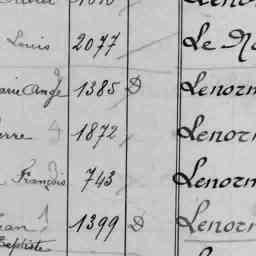 Louis 2077 Le No
Ange 1385 D Lenorm
erre 1872 Lenorm
François 743 Lenorm
ean 1399 D Lenorm
Baptiste